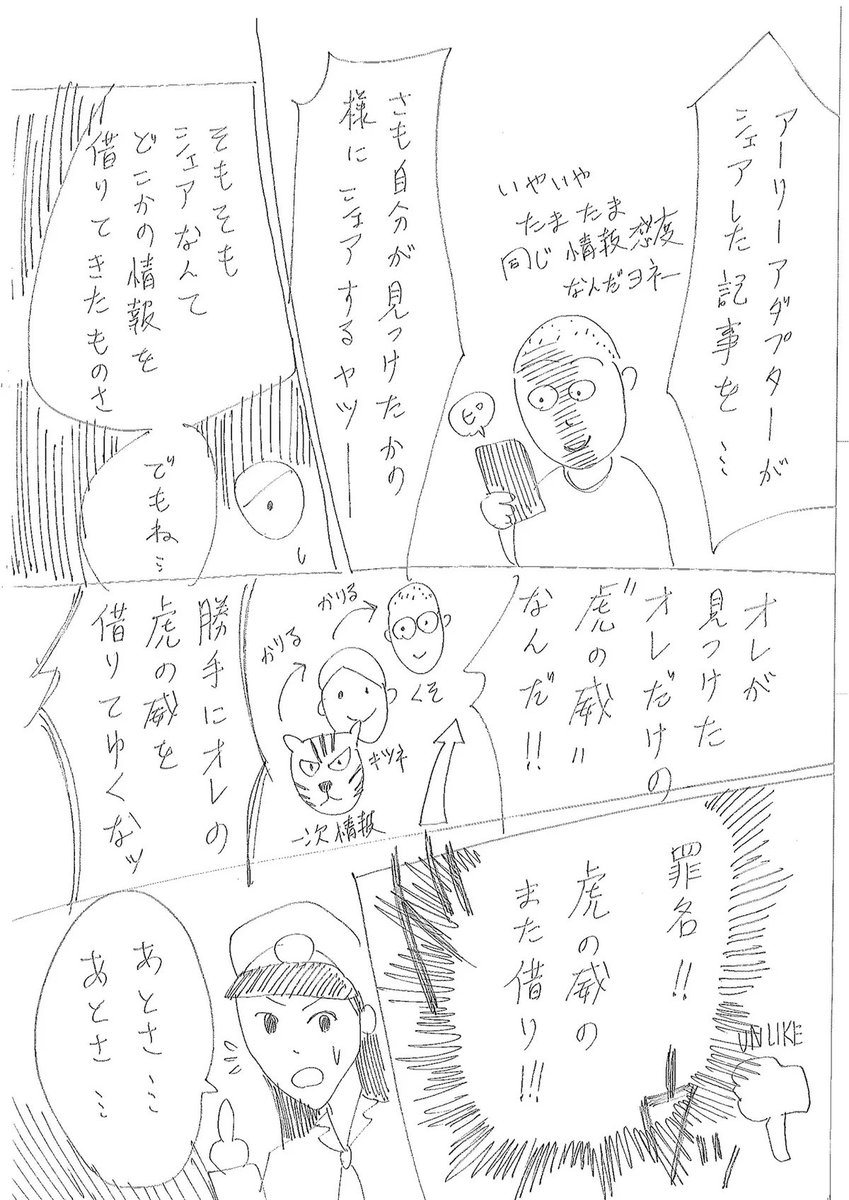 アーリーアダプターが
シェアした記事を…
いやいや
たまたま
同じ情報感度
なんだヨネー
ピ
さも自分が見つけたかの
様にシェアするヤツー
そもそも
シェアなんて
どこかの情報を
借りてきたものさ
でもね…
オレが
見つけた
オレだけの
"虎の威"
なんだ!!
かりる
かりる
くそ
キツネ
一次情報
勝手にオレの
虎の威を
借りてゆくなッ
罪名!!
虎の威の
また借り!!!
UNLIKE
あとさ…
あとさ…